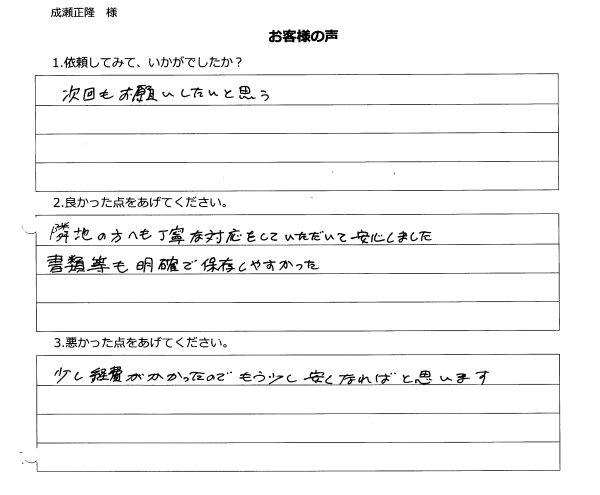 成瀬正隆　様
お客様の声
1.依頼してみて、いかがでしたか？
次回もお願いしたいと思う
2.良かった点をあげてください。
隣地の方へも丁寧な対応をしていただいて安心しました
書類等も明確で保存しやすかった
3.悪かった点をあげてください。
少し経費がかかったのでもう少し安くなればと思います